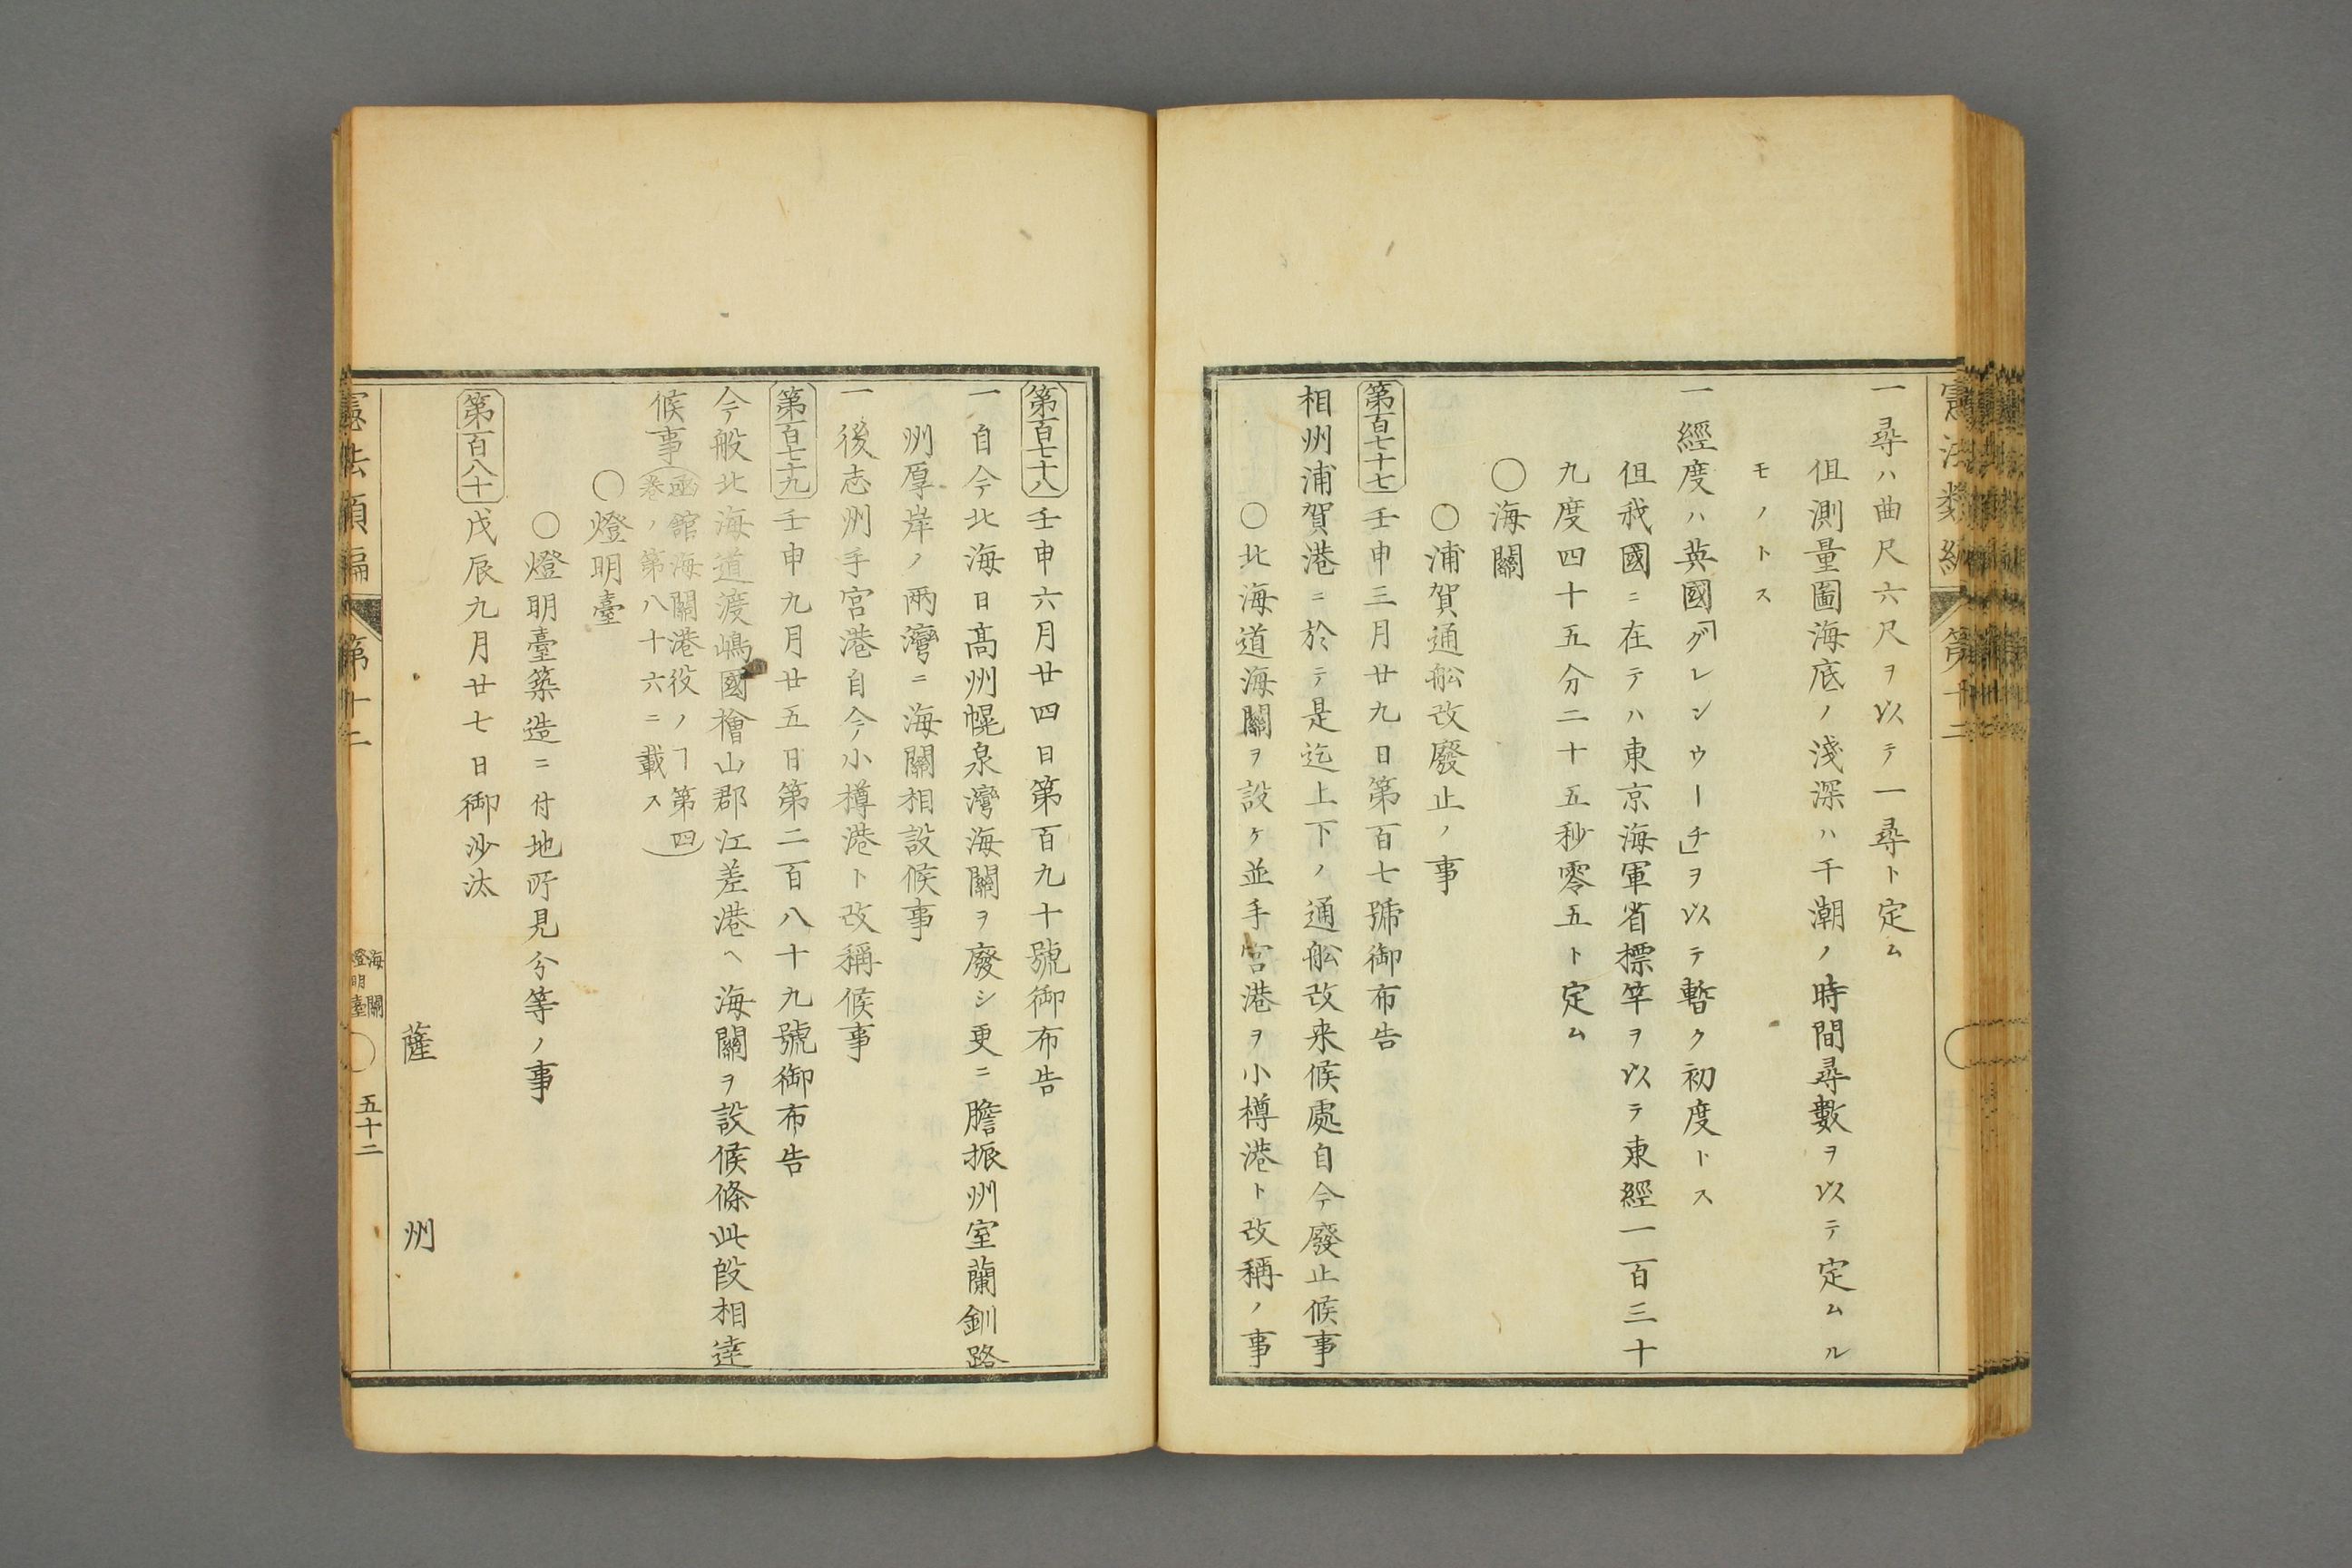 一尋ハ曲尺六尺ヲ以テ一尋ト定ム
但測量圖海底ノ淺深ハ干潮ノ時間尋數ヲ以テ定ムル
モノトス
一經度ハ英國「グレンウーチ」ヲ以テ暫ク初度トス
但我國ニ在テハ東京海軍省標竿ヲ以テ東經一百三十
九度四十五分二十五秒零五ト定ム
○海關
○浦賀通舩改廢止ノ事
第百七十七壬申三月廿九日第百七號御布告
相州浦賀港ニ於テ是迄上下ノ通舩改来候處自今廢止候事
○北海道海關ヲ設ケ並手宮港ヲ小樽港ト改稱ノ事
第百七十八壬申六月廿四日第百九十號御布告
一自今北海日高州幌泉灣海關ヲ廢シ更ニ膽振州室蘭釧路
州厚岸ノ兩灣ニ海關相設候事
一後志州手宮港自今小樽港ト改稱候事
第百七十九壬申九月廿五日第二百八十九號御布告
今般北海道渡嶋國檜山郡江差港ヘ海關ヲ設候條此段相達
候事(函館海關港役ノヿ第四
卷ノ第八十六ニ載ス)
○燈明臺
○燈明臺築造ニ付地所見分等ノ事
第百八十戊辰九月廿七日御沙汰
薩州
憲法類編 第十二 海關 燈明臺 五十二